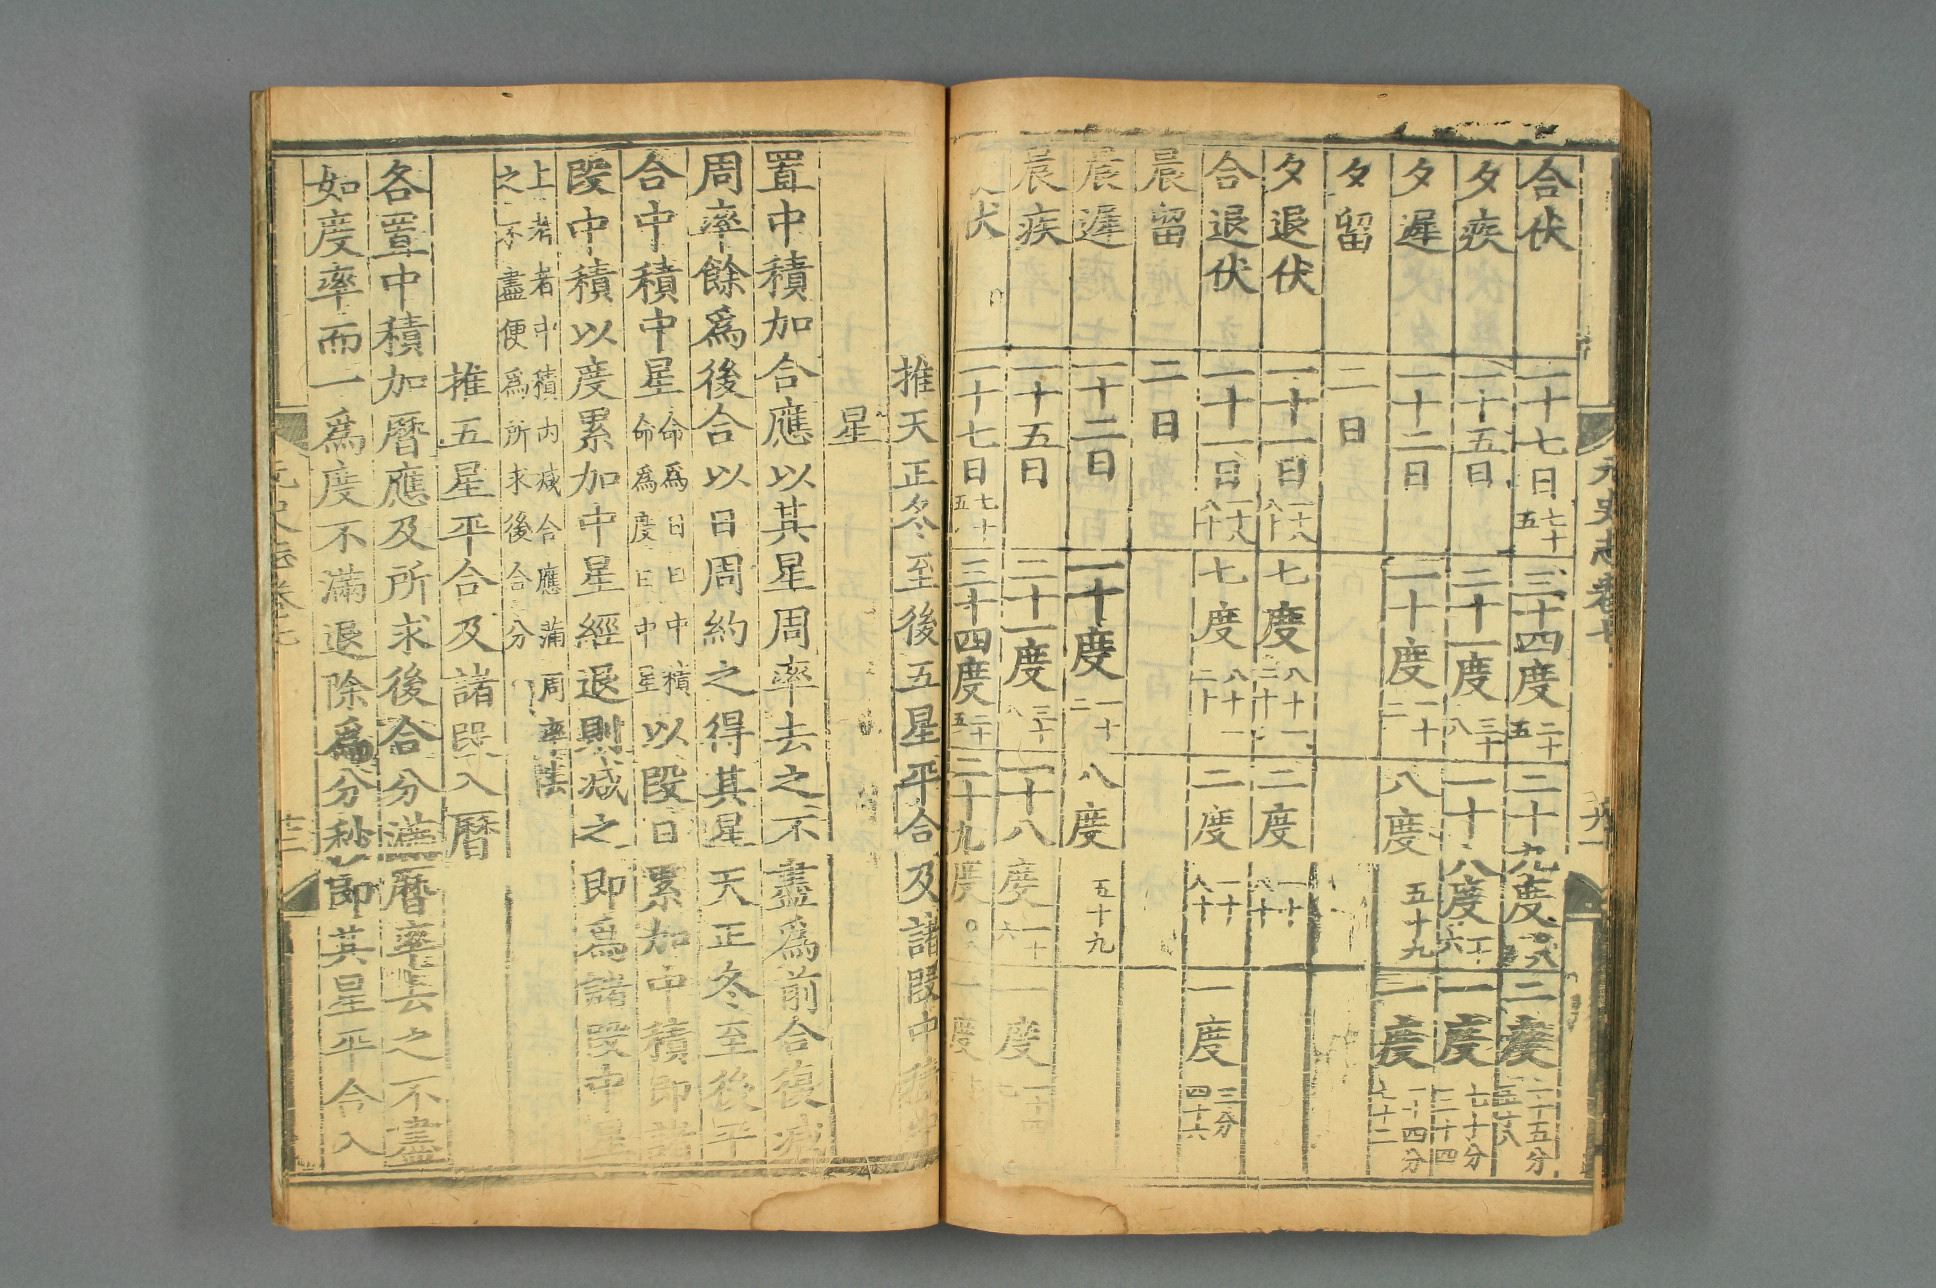 元史志卷七
合伏 一十七日七十五 三十四度二十五 二十九度〇八 二度二十五分
夕疾 一十五日 二十一度三十八 一十八度一十六 一度七十分三十四
夕遲 一十二日 一十度一十二 八度五十九 一度一十四分七十二
夕留 二日
夕退伏 一十一日一十八八十 七度八十一二十 二度
合退伏 一十一日一十八八十 七度八十一二十 二度一十八十 一度三分四十六
晨留 二日
晨遲 一十二日 一十度一十二 八度五十九
晨疾 一十五日 二十一度三十八 一十八度一十六 一度一十四
伏 一十七日七十五 三十四度二十五 二十九度 一度
推天正冬至後五星平合及諸段中積中
星
置中積加合應以其星周率去之不盡爲前合復減
周率餘爲後合以日周約之得其星天正冬至後平
合中積中星命爲日曰中積命爲度曰中星以段日累加中積即諸
段中積以度累加中星經退則减之即爲諸段中星
上考者中積内减合應滿周率去
之不盡便爲所求後合分
推五星平合及諸段入曆
各置中積加曆應及所求後合分滿曆率去之不盡
如度率而一爲度不滿退除爲分秒即其星平合入
元史志卷七